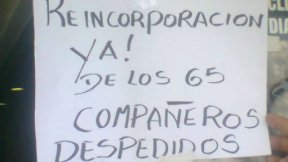 REINCORPORACION
YA!
DE LOS 65
COMPAÑEROS
DESPEDIDOS